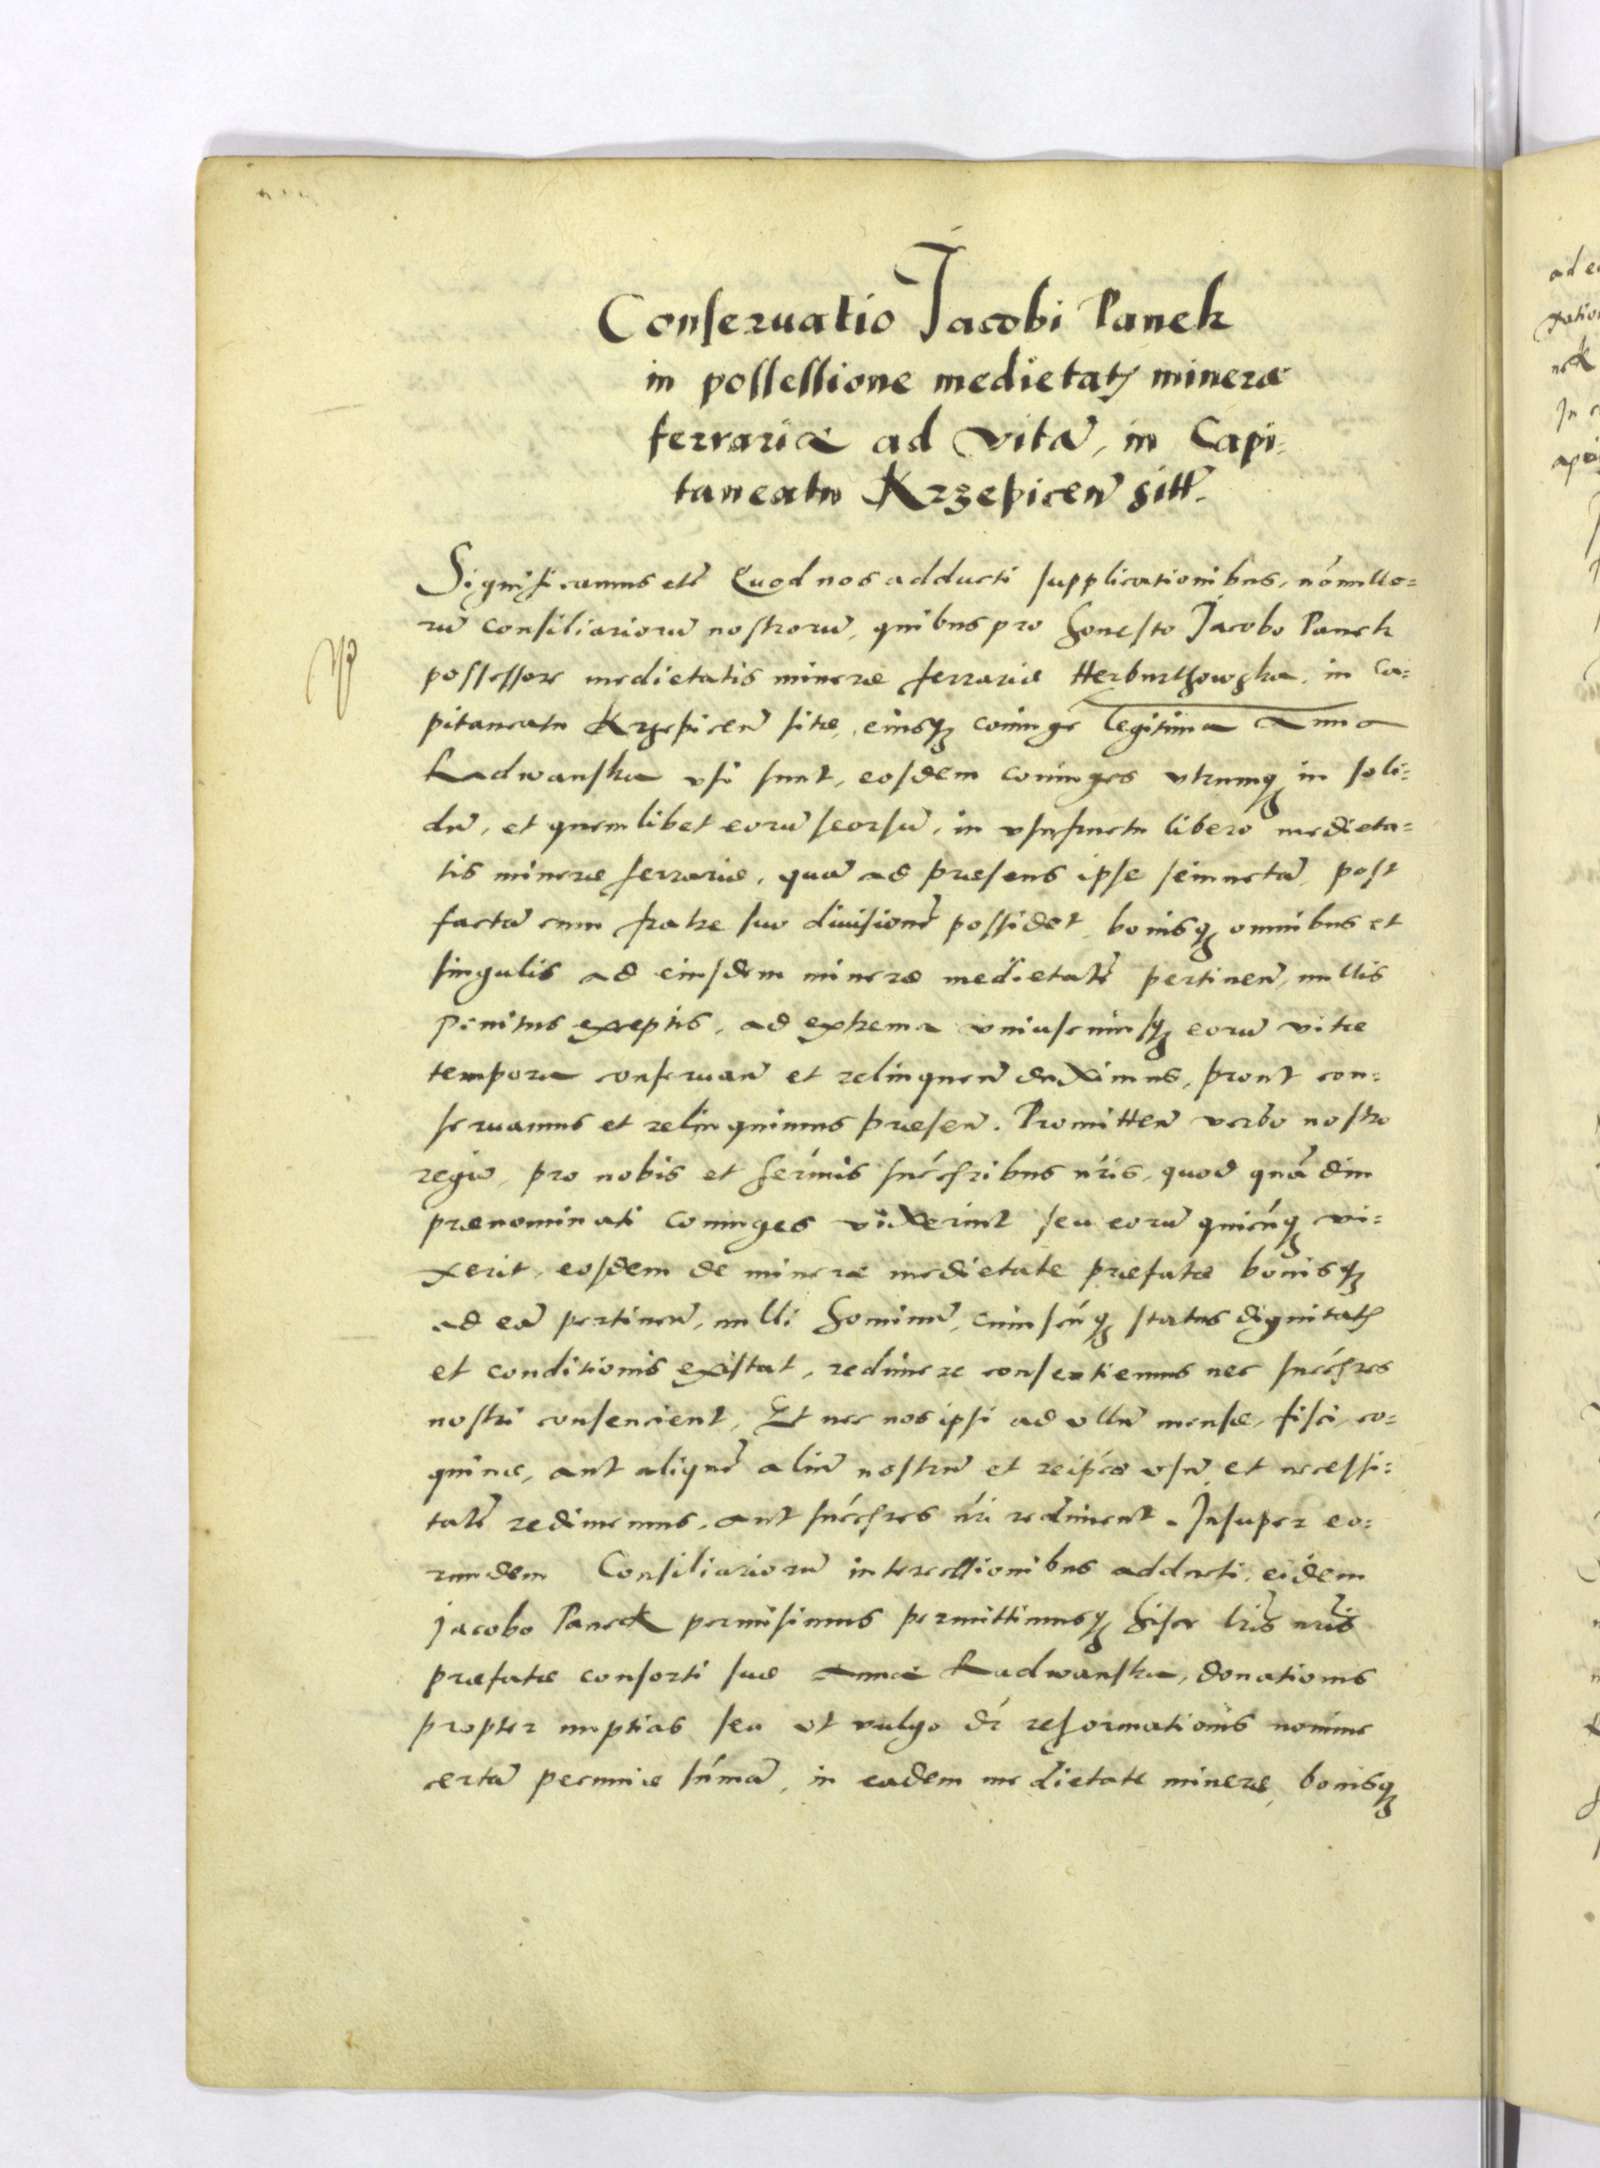 Conseruatio Jacobi Panek
in possessione medietatꝭ mineræ
ferrariæ ad vitã, in Capi=
taneatu Krzepiceñ sitæ.
Significamus etc̃ Quod nos adducti supplicationibus, nõnullo=
rũ consiliariorũ nostrorũ, quibus pro honesto Jacobo Panek
possessore medietatis mineræ ferrariæ Herburthowska, in Ca=
pitaneatu Krzepiceñ sitæ, eiusqꝫ coniuge legitima Anna
Radwanska vsi sunt, eosdem coniuges vtrumqꝫ in soli=
dũ, et quemlibet eorũ seorsũ, in vsufructu libero medieta=
tis mineræ ferrariæ, quã ad præsens ipse seiunctã, post
factã cum fratre suo diuisionẽ possidet, bonisqꝫ omnibus et
singulis ad eiusdem mineræ medietatẽ pertineñ, nullis
penitus exceptis, ad extrema vniuscuiusqꝫ eorũ vitæ
tempora conseruañ et relinqueñ duximus, prout con=
seruamus et relinquimus præseñ. Promitteñ verbo nostro
regio, pro nobis et serm̃is succ̃ribus nr̃is, quod quã diu
prænominati coniuges vixerint seu eorũ quicũqꝫ vi=
xerit, eosdem de mineræ medietate præfatæ bonisqꝫ
ad eã pertineñ, nulli hominũ, cuiuscũqꝫ status dignitatꝭ
et conditionis existat, redimere consentiemus nec succ̃res
nostri consencient, Et nec nos ipsi ad vllũ mensæ, fisci, co=
quinæ, aut aliquẽ aliũ nostrũ et reip̃cæ vsũ et necessi=
tatẽ redimemus, aut succ̃res nr̃i rediment. Insuper eo=
rundem Consiliariorũ intercessionibus adducti, eidem
Jacobo Panek permisimus permittimusqꝫ hisce lr̃is nr̃is
præfatæ consorti suæ Annæ Radwanska, donationis
propter nuptias seu vt vulgo dr̃ reformationis nomine
certã pecuniæ sum̃ã, in eadem medietate mineræ, bonisqꝫ